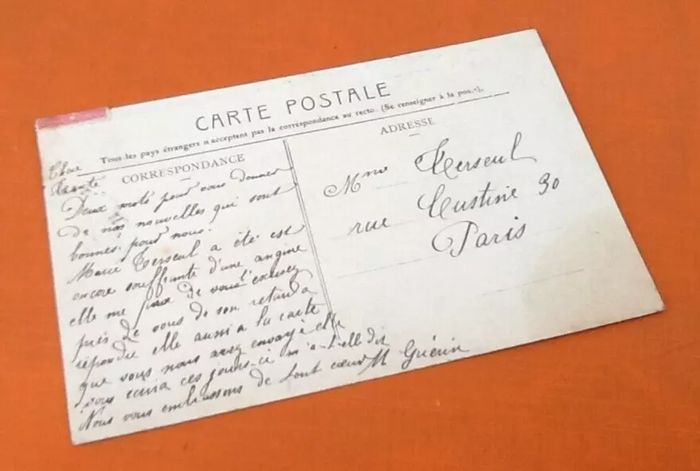 CARTE POSTALE
Tous les pays étrangers n'acceptent pas la correspondance au recto. (Se renseigner à la poste).
CORRESPONDANCE
ADRESSE
Chère
Tante
Deux mots pour vous donner
de nos nouvelles qui sont
bonnes pour nous.
Marie Terseul a été est
encore souffrante d'une angine
elle me de vous l'excuser
près de vous de son retard a
répondre elle aussi a la carte
que vous nous avez envoyé elle
vous ecrira ces jours-ci m'a-t-elle dit
Nous vous embrassons de tout cœur M Guérin
Mme Terseul
rue Custine 30
Paris